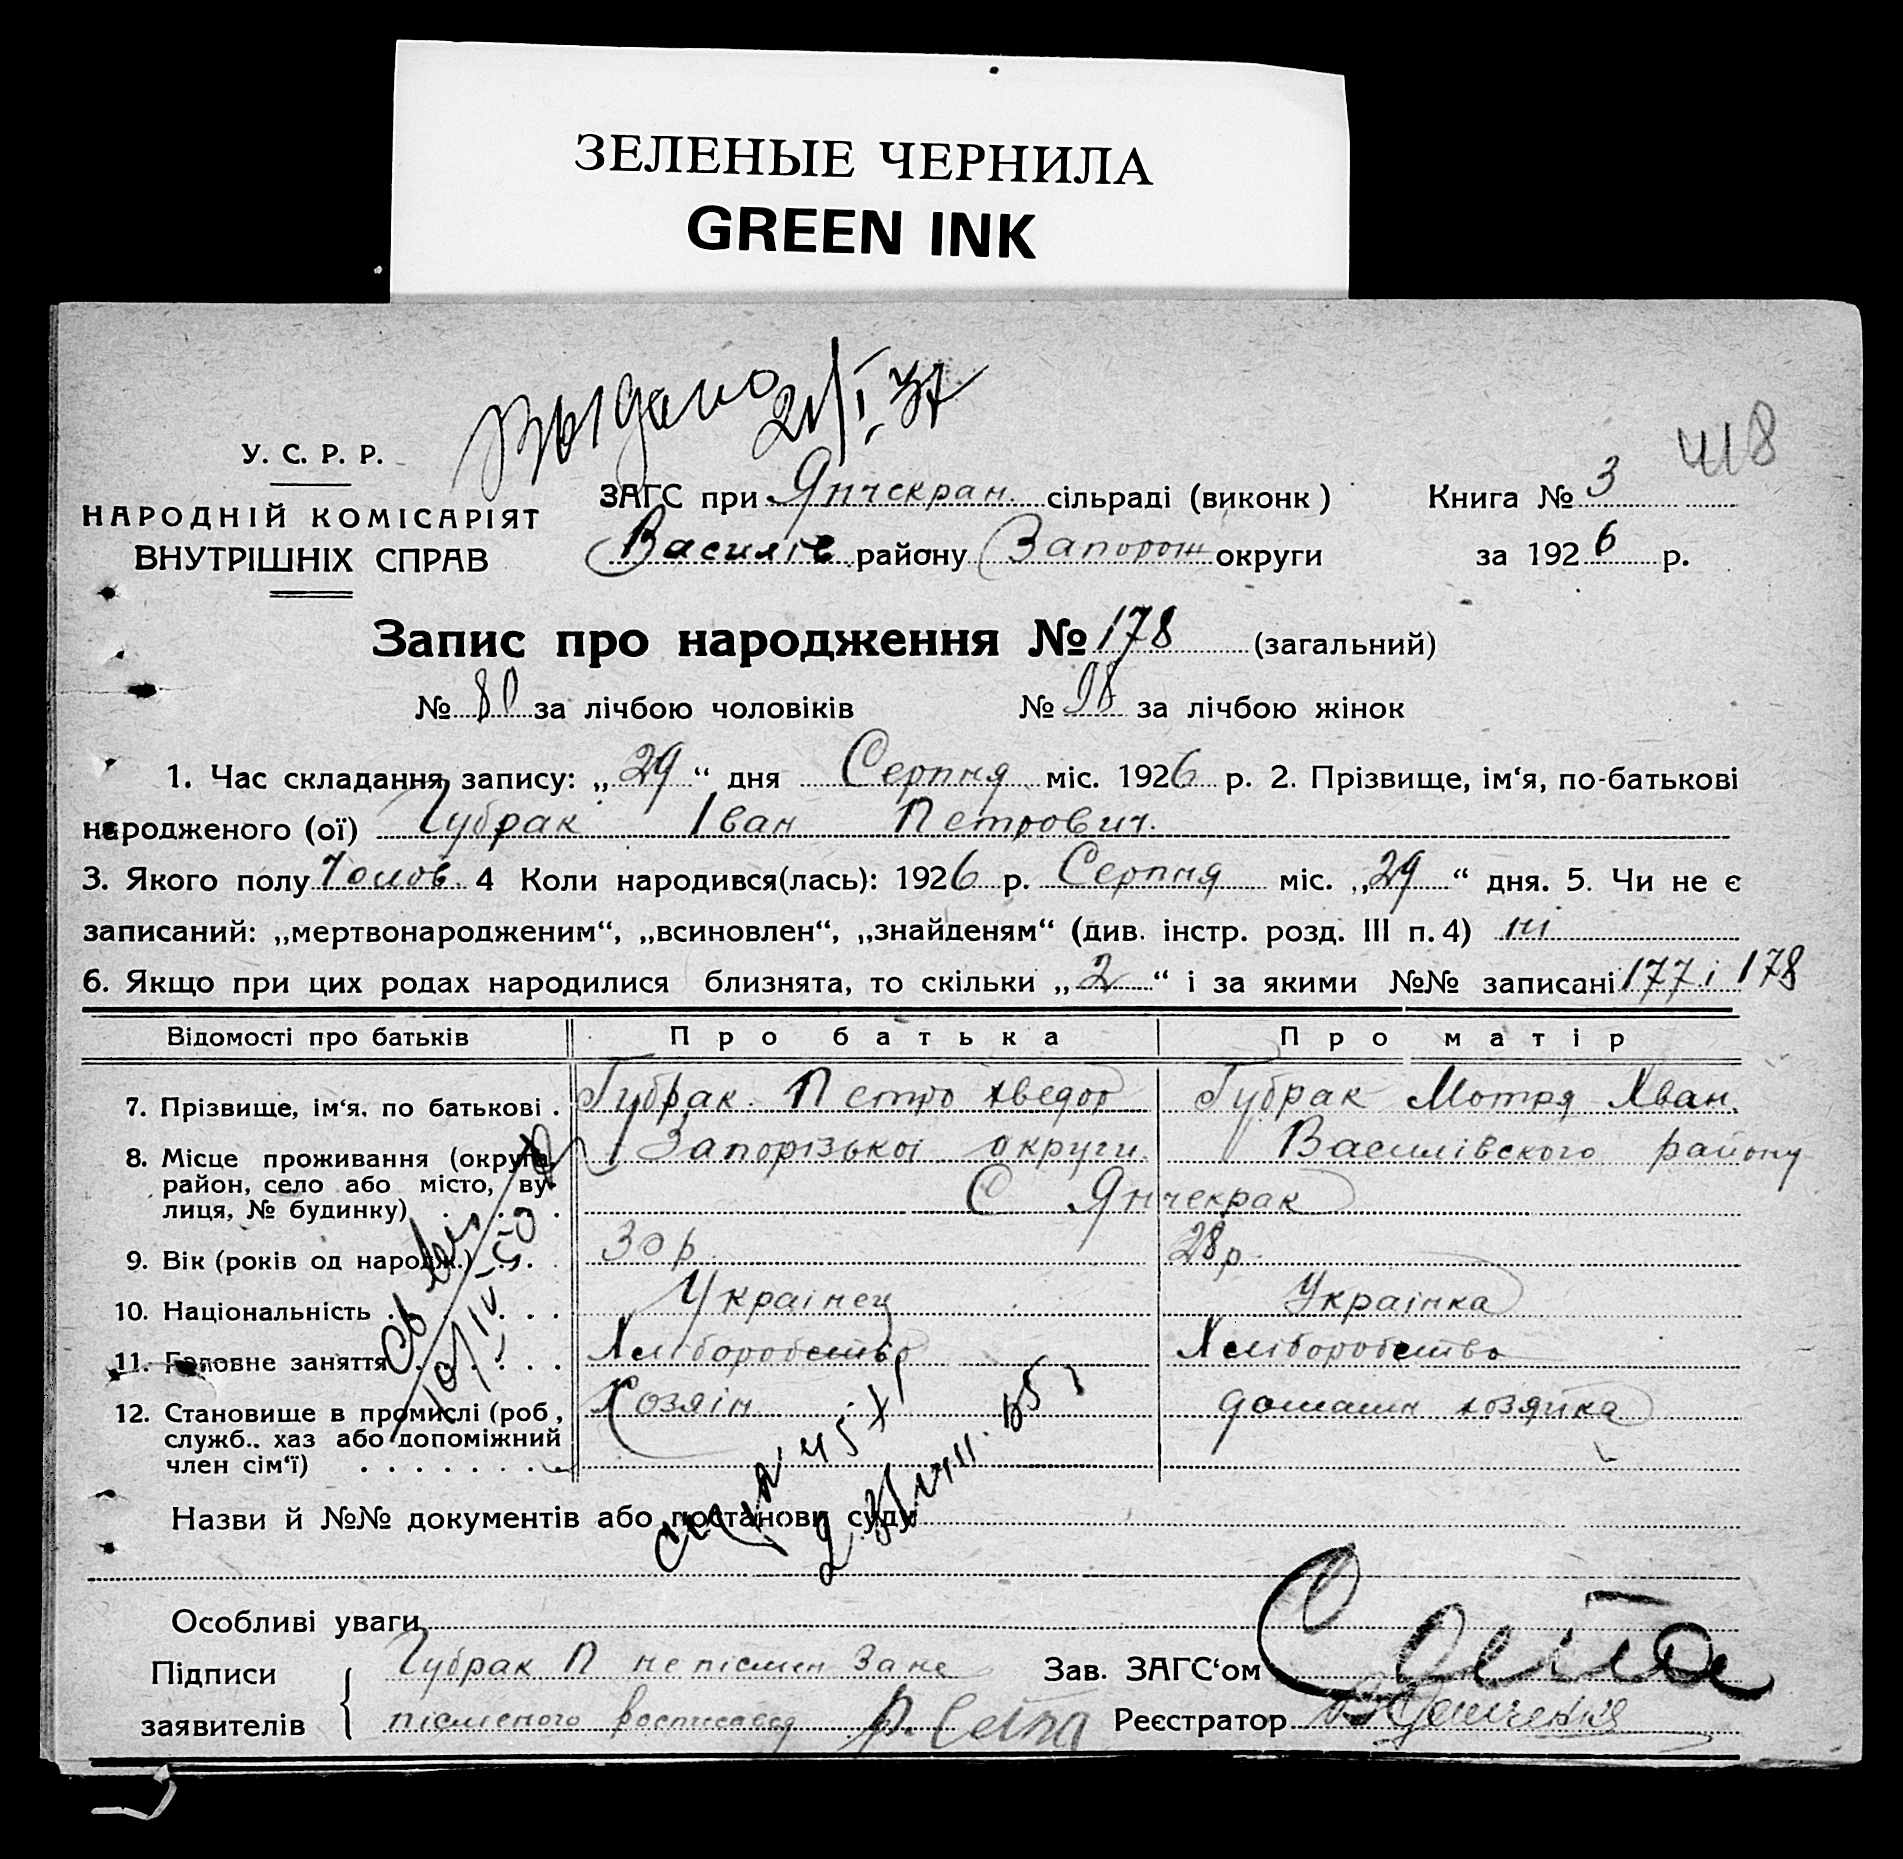 ЗЕЛЕНЫЕ ЧЕРНИЛА
GREEN INK
Выдано 21/I 37
418
У. С. Р. Р.
НАРОДНІЙ КОМІСАРІЯТ
ВНУТРІШНІХ СПРАВ
ЗАГС при Янчекран. сільраді (виконк) Книга № 3
Василів району Запорож округи за 1926 р.
Запис про народження № 178 (загальний)
№ 80 за лічбою чоловіків № 98 за лічбою жінок
1. Час складання запису: „29“ дня Серпня міс. 1926 р. 2. Прізвище, ім‘я, по-батькові
народженого (ої) Губрак Іван Петрович.
3. Якого полу Чолов. 4 Коли народився(лась): 1926 р. Серпня міс. „29“ дня. 5. Чи не є
записаний: „мертвонародженим“, „всиновлен“, „знайденям“ (див. інстр. розд. III п. 4) ні
6. Якщо при цих родах народилися близнята, то скільки „2“ і за якими №№ записані 177 і 178
Відомості про батьків Про батька Про матір
7. Прізвище, ім‘я, по батькові . Губрак Петро Хведор Губрак Мотря Хван.
8. Місце проживання (округа, Запорізької округи Василівского району
район, село або місто, ву-
лиця, № будинку) . . . . С Янчекрак
9. Вік (років од народж.) . . . 30 р. 28 р.
10. Національність . . . . . Українец Українка
11. Головне заняття . . . . . Хліборобство Хліборобство
12. Становище в промислі (роб, Хозяін домашн хозяйка
служб.. хаз або допоміжний
член сім‘ї) . . . . . . .
Назви й №№ документів або постанови суду
Особливі уваги
Підписи Губрак П неписмен за не Зав. ЗАГС‘ом
заявителів писменого Реєстратор